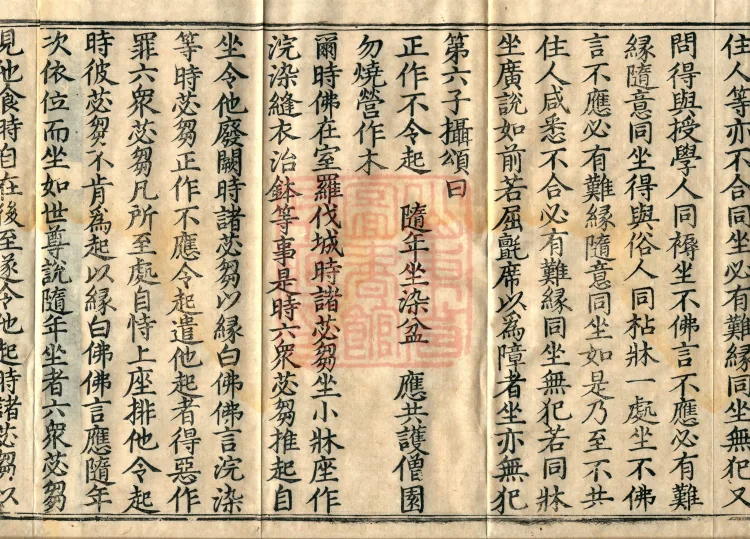 住人等亦不合同坐必有難緣同坐無犯又
問得與授學人同褥坐不佛言不應必有難
緣隨意同坐得與俗人同枯牀一處坐不佛
言不應必有難緣隨意同坐如是乃至不共
住人咸悉不合必有難緣同坐無犯若同牀
坐廣說如前若屈氈席以為障者坐亦無犯
第六子攝頌曰
正作不令起　隨年坐染盆　應共護僧園
勿燒營作木
爾時佛在室羅伐城時諸苾芻坐小牀座作
浣染縫衣治鉢等事是時六衆苾芻推起自
坐令他廢闕時諸苾芻以緣白佛佛言浣染
等時苾芻正作不應令起遣他起者得惡作
罪六衆苾芻凡所至處自恃上座排他令起
時彼苾芻不肯為起以緣白佛佛言應隨年
次依位而坐如世尊說隨年坐者六衆苾芻
見他食時自在後至遂令他起時諸苾芻以